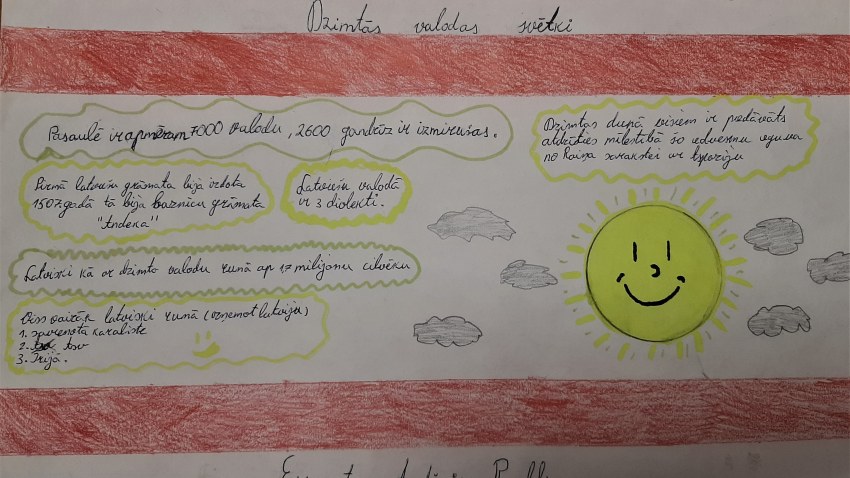 Dzimtās valodas svētki
Pasaulē ir apmēram 7000 valodu, 2600 gandrīz ir izmirušas.
Dzimtas dunā visiem ir piedāvāts
atdzīties mīlestībā šo
no Raiņa sarakstei ar Aspaziju
Pirmā latviešu grāmata bija izdota
1507.gadā tā bija baznīcu grāmata
Latviešu valodā
ir 3 dialekti.
Latviski kā ar dzimto valodu runā ap 1,7 milijonu cilvēku
Viss vairāk latviski runā (izņemot latviju)
1. savienota karaliste
2. 
3. Īrijā.